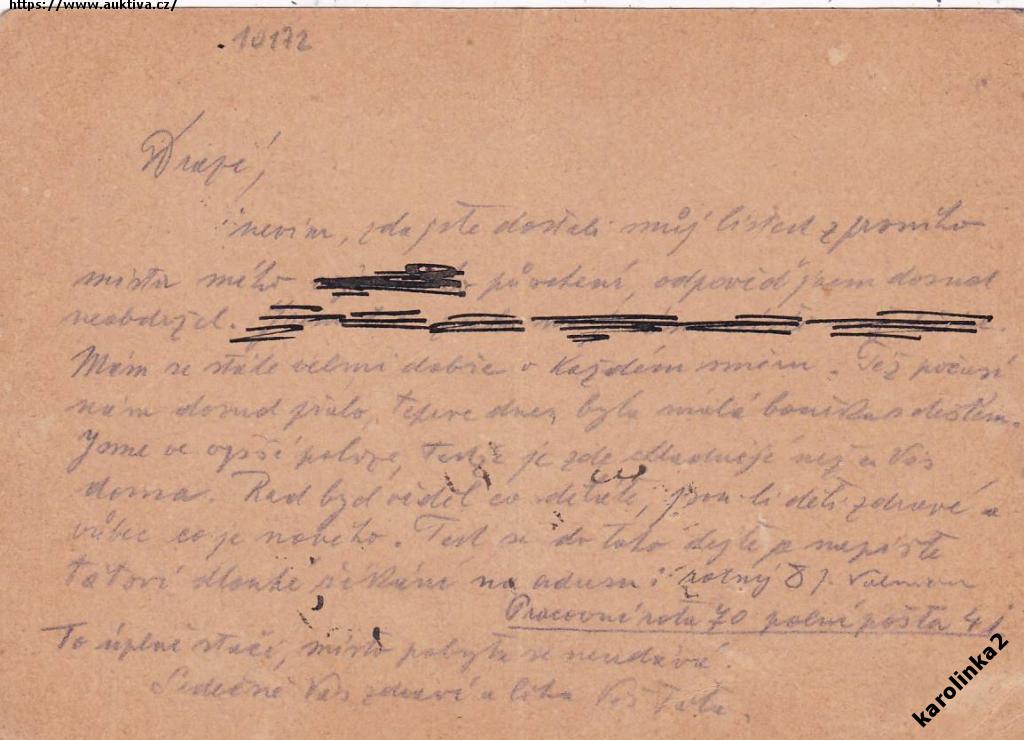 https://www.auktiva.cz/
10172
Drazí,
nevím, zda jste dostali můj lístek z prvního
místa mého působení, odpověď jsem dosud
neobdržel.
Mám se stále velmi dobře v každém směru. Též počasí
nám dosud přálo, teprve dnes byla malá bouřka s deštěm.
Jsme ve vyšší poloze, takže je zde chladněji než u Vás
doma. Rád bych věděl co děláte, jsou-li děti zdravé a
vůbec co je nového. Teď se do toho dejte a napište
tátovi dlouhé na adresu: rotný J.
Pracovní rota 70 polní pošta 41
To úplně stačí, místo pobytu se neudává.
Srdečně Vás zdraví a líbá Váš táta.
karolinka2